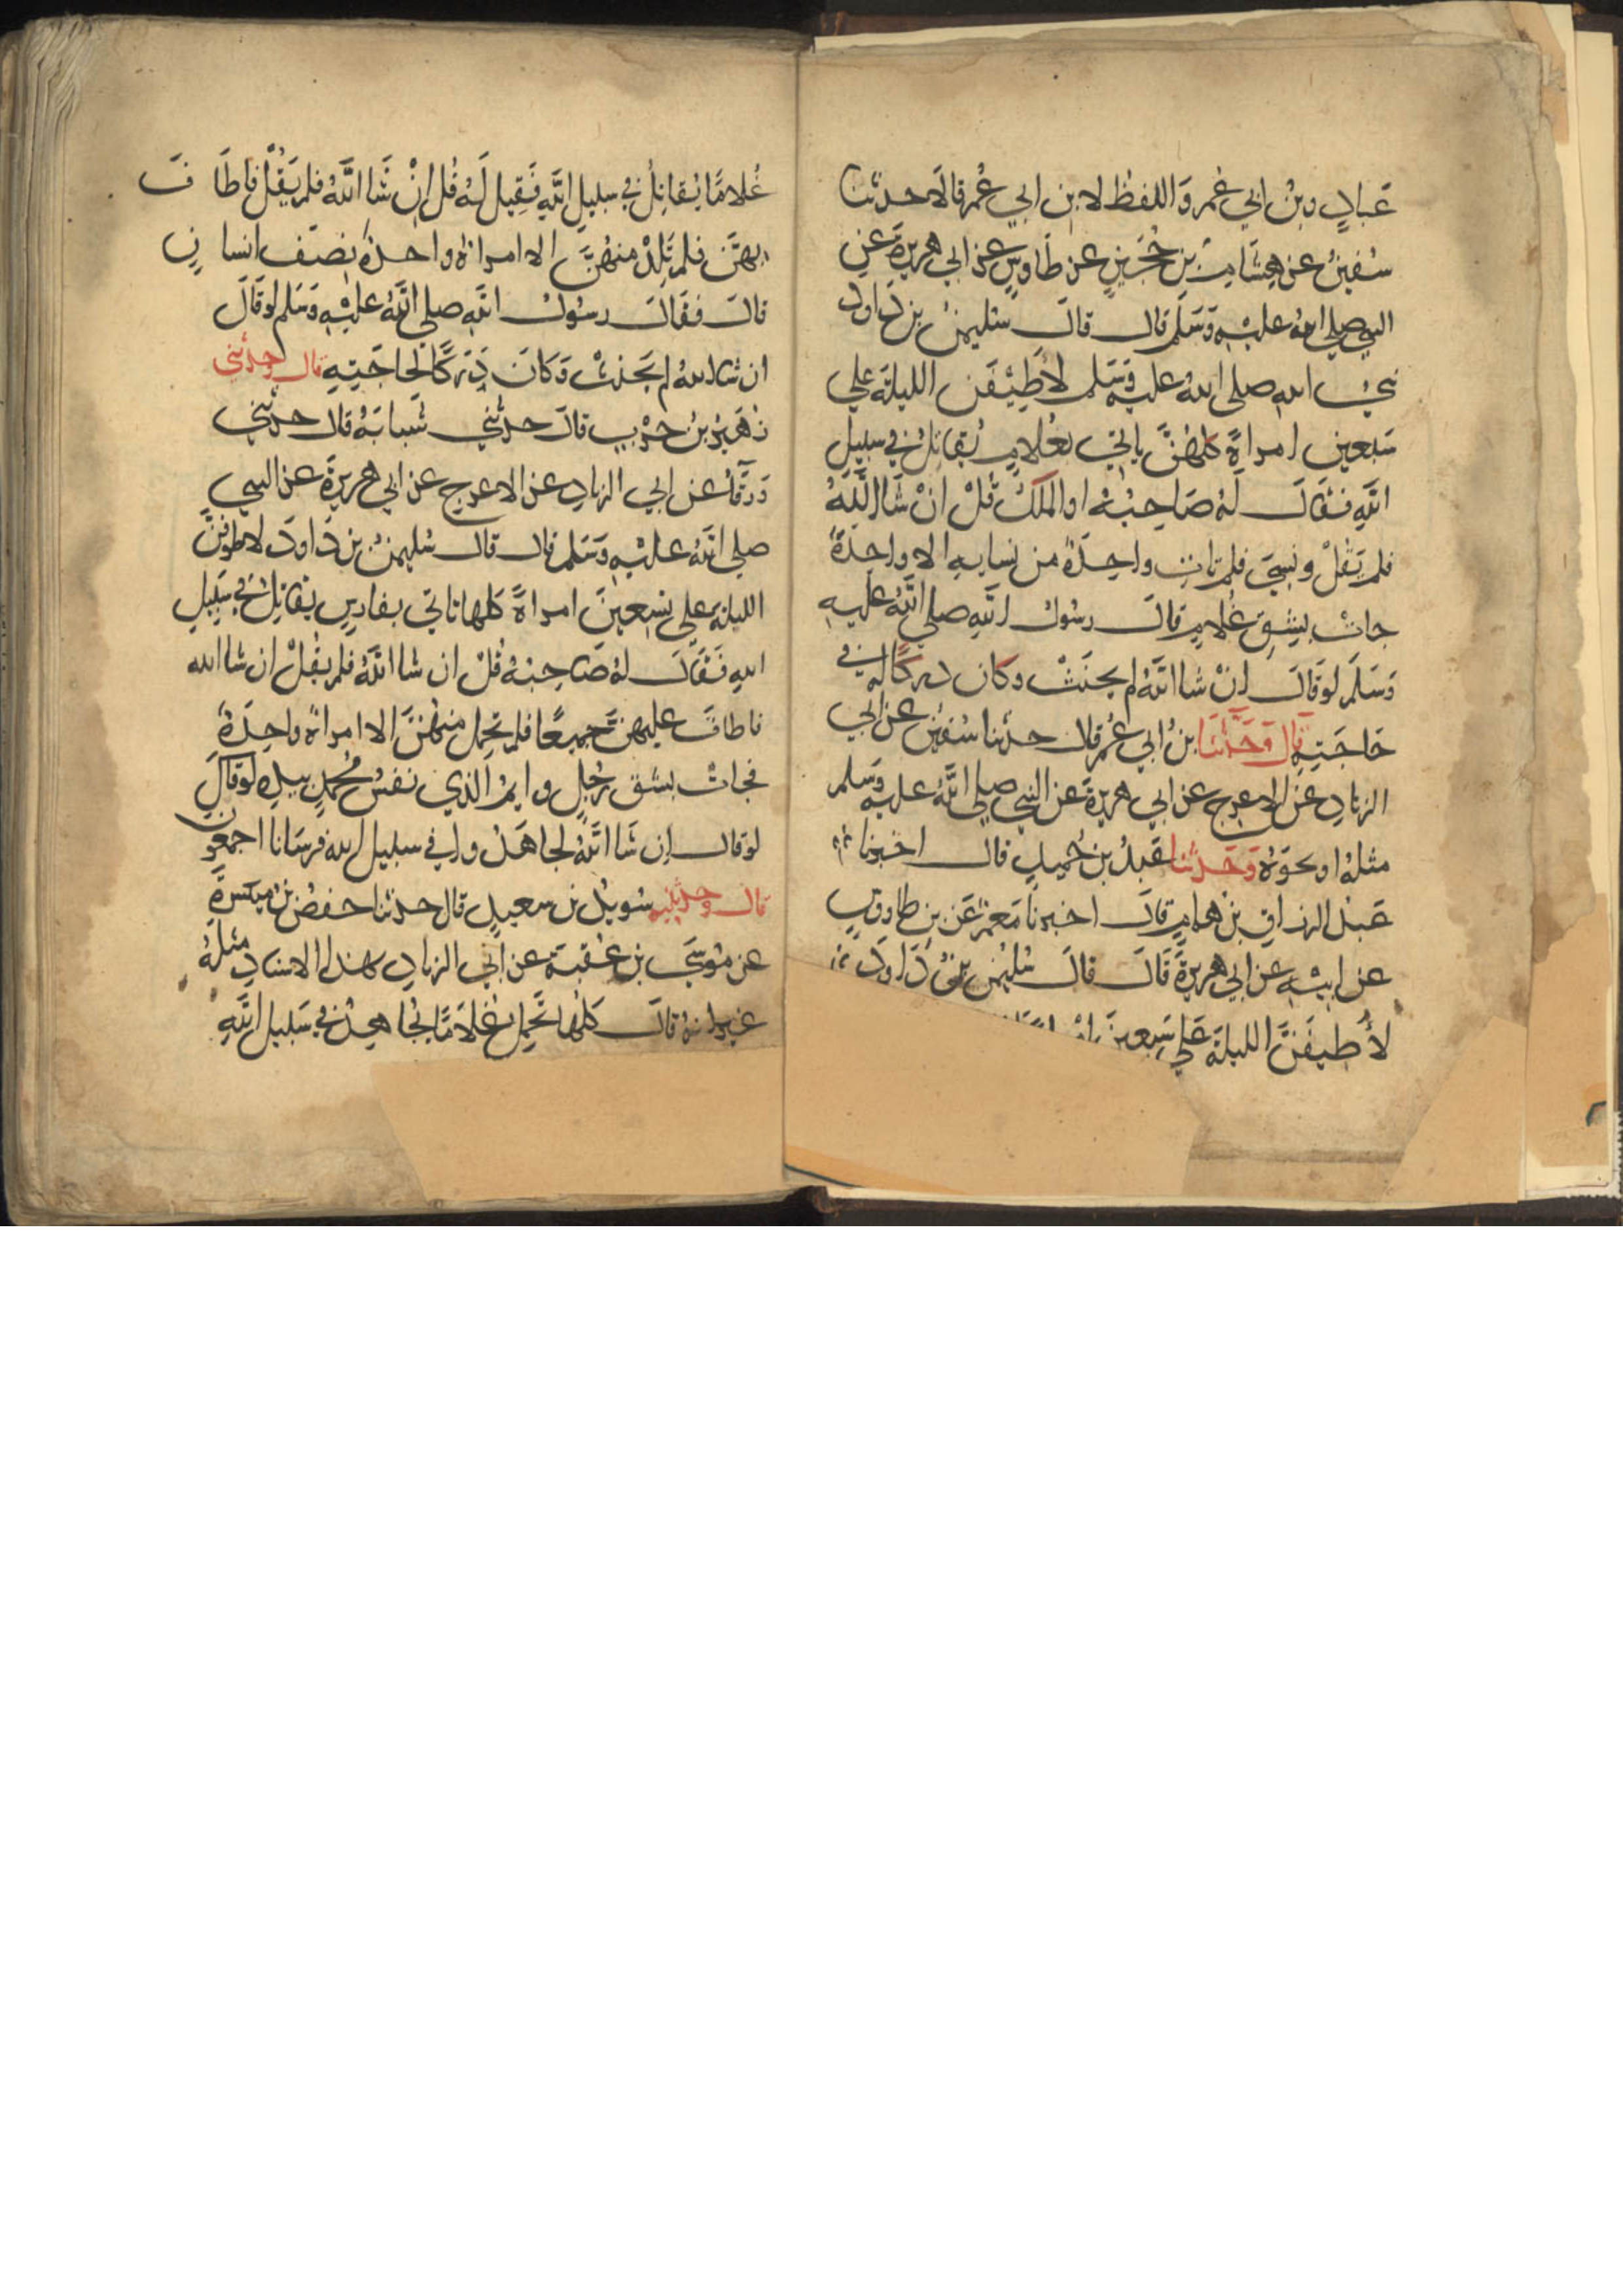 عَبادٍ وبنُ ابي عُمر وَاللفظ لابن ابي عُمر قالَا حدثنا
سُفينُ عن هِشَامِ بنِ حُجَيرٍ عن طَاوسٍ عن ابي هريرةَ عنِ
النبي صلى اللهُ عليْهِ وَسَلم قال قالَ سُليمنُ بن دَاود
نبيُ اللهِ صلى اللهُ عليه وَسَلم لأُطِيْفَن الليلةَ على
سَبعين امراةً كلهُنَّ ياتي بغُلامٍ يُقاتِلُ في سبيلِ
اللهِ فقالَ لهُ صَاحِبُهُ او الملَكُ قُلْ انْ شَا اللهُ
فلم يَقُلْ ونسِيَ فلم تاتِ واحِدَةٌ من نسايهِ الا واحِدَةٌ
جاتْ بِشِقِ غُلامٍ قالَ رسُولُ اللهِ صلى اللهُ عليه
وَسَلَم لو قالَ انْ شا اللهُ لم يحنَثْ وكان دركًا له في
حَاجَتِهِ قال وَحَدثنا بنُ ابي عُمر قال حدثنا سُفينُ عن ابي
الزنادِ عن الاعرج عن ابي هريرةَ عن النبي صلى اللهُ عليه وَسَلم
مثلهُ او نحوَهُ وَحَدثنا عَبدُ بن حُميدٍ قال اخبرنا
عَبدُ الرزاقِ بن همامٍ قالَ اخبرنا مَعمرٌ عَن بن طاووسٍ
عن ابيْهِ عن ابي هريرةَ قَالَ قالَ سُليمن بنُ دَاودَ
لأُطيفَنَّ الليلةَ عَلي سَبعينَ
غُلامًا يُقاتِلُ في سبيلِ اللهِ فَقِيلَ لَهُ قُل انْ شَا اللهُ فلم يَقُلْ فاطَافَ
بهنَّ فلم تَلِدْ منهُنَّ الا امراةٌ واحدةٌ نِصْفَ انسانٍ
قالَ فقَالَ رسُولُ اللهِ صلى اللهُ عليْهِ وَسَلم لو قَالَ
ان شا اللهُ لم يَحنثْ وَكانَ دَرَكًا لحَاجَتِهِ قال وحدثني
زهَيرُ بنُ حرْبٍ قالَ حدثني شَبابَةُ قال حدثني
وَرقَآُ عن ابي الزنادِ عن الاعرج عن ابي هريرةَ عن النبي
صلى اللهُ عليْهِ وَسَلم قال قال سُليمنُ بن دَاودَ لاطوفنَّ
الليلةَ على تسِعينَ امراةً كلها تاتي بفارسٍ يقاتِلُ في سَبيلِ
اللهِ فَقَالَ لهُ صَاحِبُهُ قُل ان شا اللهُ فلم يقُلْ ان شا الله
فاطافَ عليهنَّ جميعًا فلم تحمل منهُنَّ الا امراةٌ واحِدَةٌ
فجاتْ بشق رَجُلٍ وايمُ الذي نفسُ مُحمدٍ بيدِهِ لو قالَ
لو قال ان شَا اللهُ لجاهَدُوا في سبيلِ اللهِ فرسَانا اجمعون
قال وحدثنيه سُويدُ بن سعيدٍ قال حدثنا حفصُ بنُ ميسَرةَ
عن مُوسَى بن عُقبةَ عن ابي الزنادِ بهذا الاسنادِ مثلَهُ
غير انهُ قالَ كلهُا تَحمِلُ غُلامًا يُجاهِدُ في سَبيلِ اللهِ